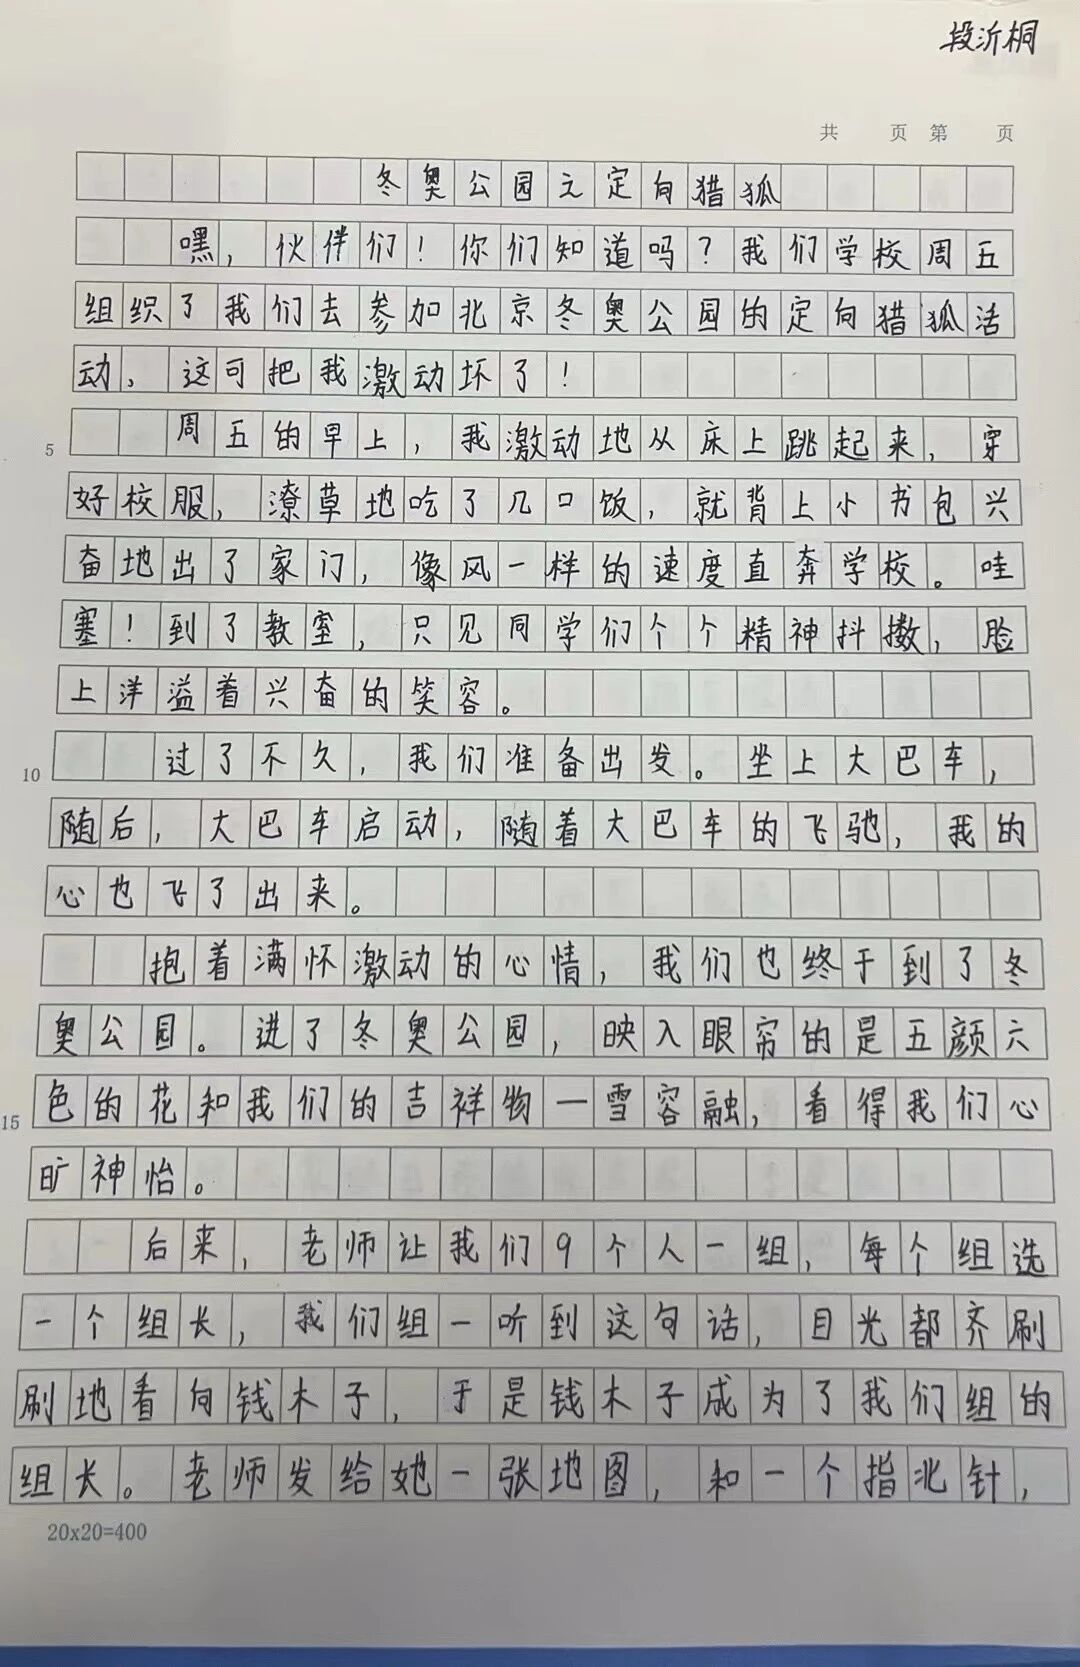 段沂桐
共 页 第 页
冬奥公园之定向猎狐
嘿，伙伴们！你们知道吗？我们学校周五
组织了我们去参加北京冬奥公园的定向猎狐活
动，这可把我激动坏了！
5 周五的早上，我激动地从床上跳起来，穿
好校服，潦草地吃了几口饭，就背上小书包兴
奋地出了家门，像风一样的速度直奔学校。哇
塞！到了教室，只见同学们个个精神抖擞，脸
上洋溢着兴奋的笑容。
10 过了不久，我们准备出发。坐上大巴车，
随后，大巴车启动，随着大巴车的飞驰，我的
心也飞了出来。
抱着满怀激动的心情，我们也终于到了冬
奥公园。进了冬奥公园，映入眼帘的是五颜六
15 色的花和我们的吉祥物一雪容融，看得我们心
旷神怡。
后来，老师让我们9个人一组，每个组选
一个组长，我们组一听到这句话，目光都齐刷
刷地看向钱木子，于是钱木子成为了我们组的
组长。老师发给她一张地图，和一个指北针，
20x20=400